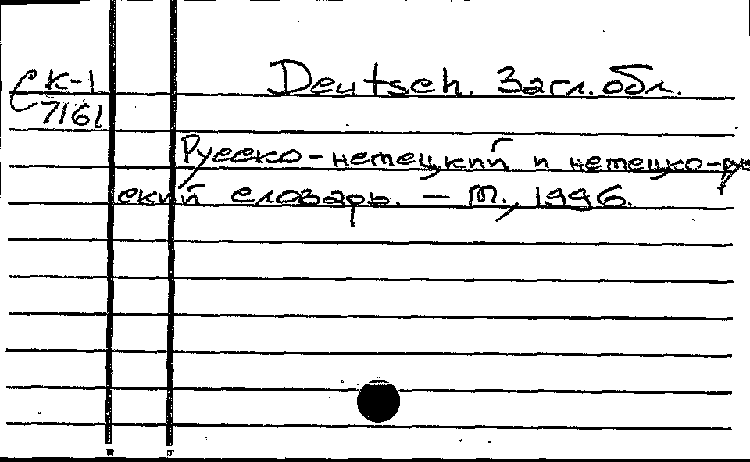 СК-1
7161
Deutsch. Загл. обл.
Русско-немецкий и немецко-рус
ский словарь. — М., 1996.